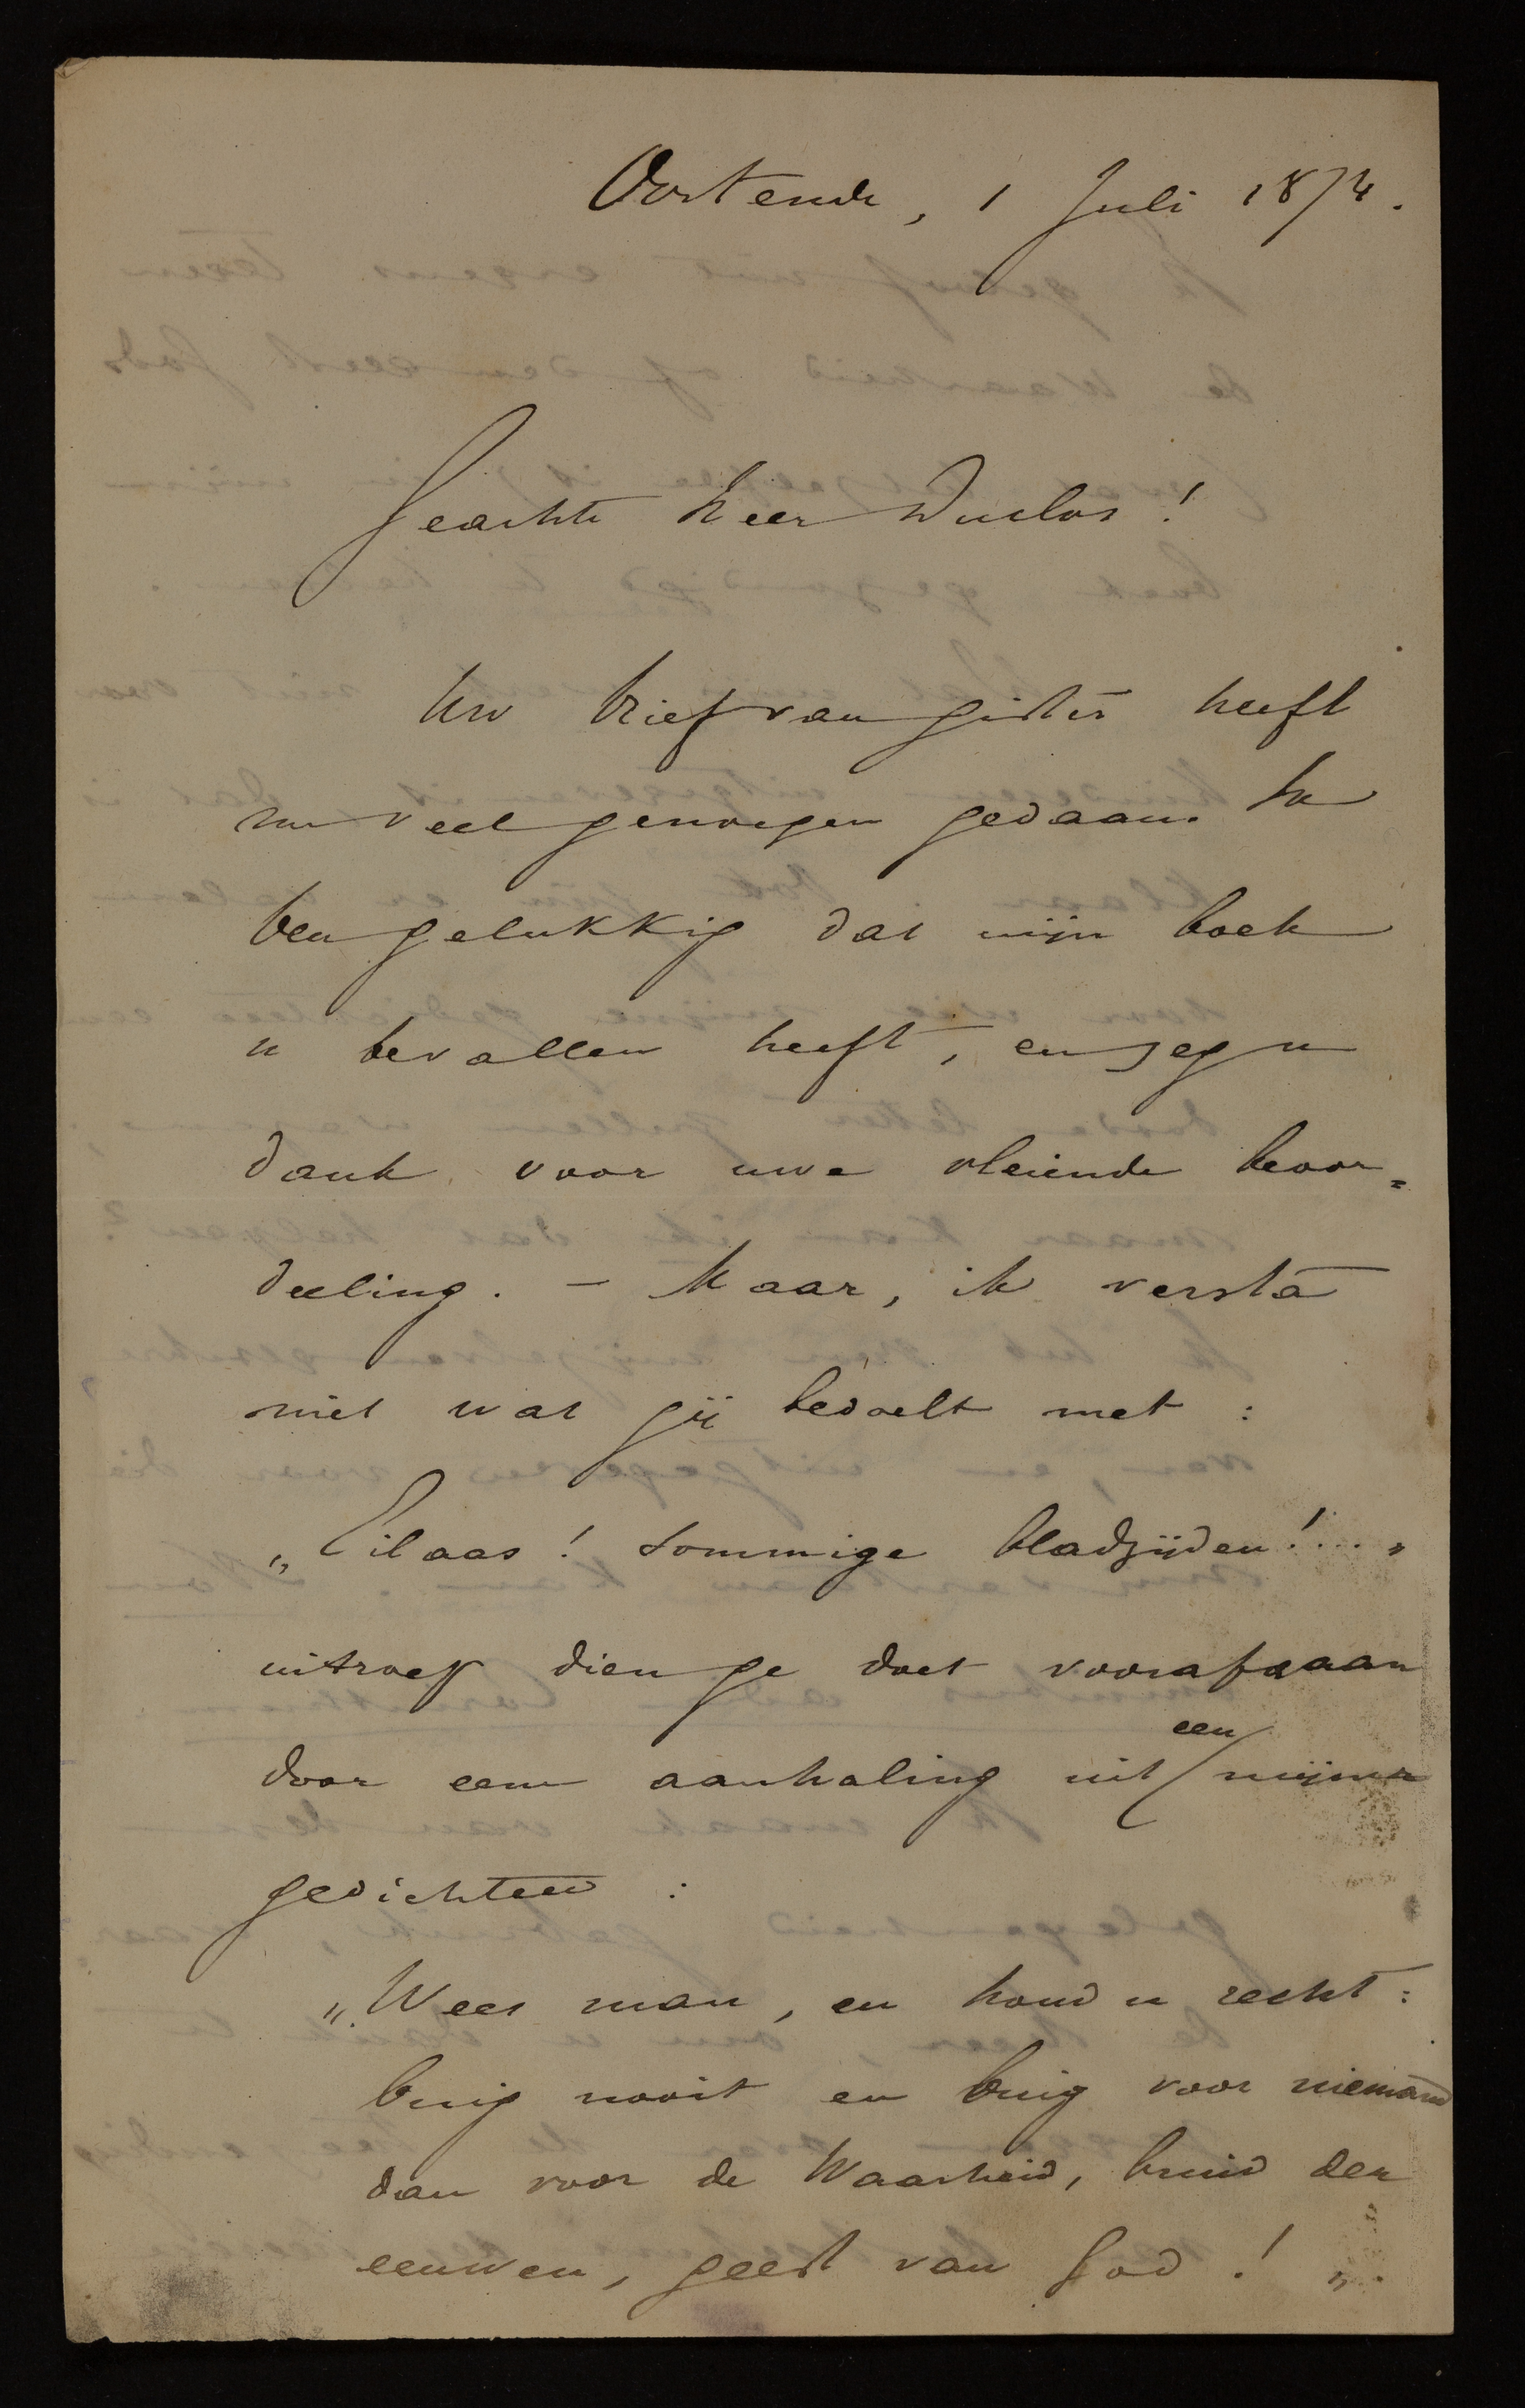 Oostende, 1 Juli 1874.
Geachte heer Duclos!
Uw brief van gister heeft
me veel genoegen gedaan. Ik
ben gelukkig dat mijn boek
u bevallen heeft, en zeg u
dank voor uwe vleiende beoor=
deeling. – Maar, ik versta
niet wat gij bedoelt met :
„Eilaas! Sommige bladzijden!...„
uitroep dien ge doet voorafgaan
door eene aanhaling uit een mijner
gedichten :
„Wees man, en houd u recht:
buig nooit en buig voor niemand
dan voor de Waarheid, bruid der
eeuwen, geest van God! „